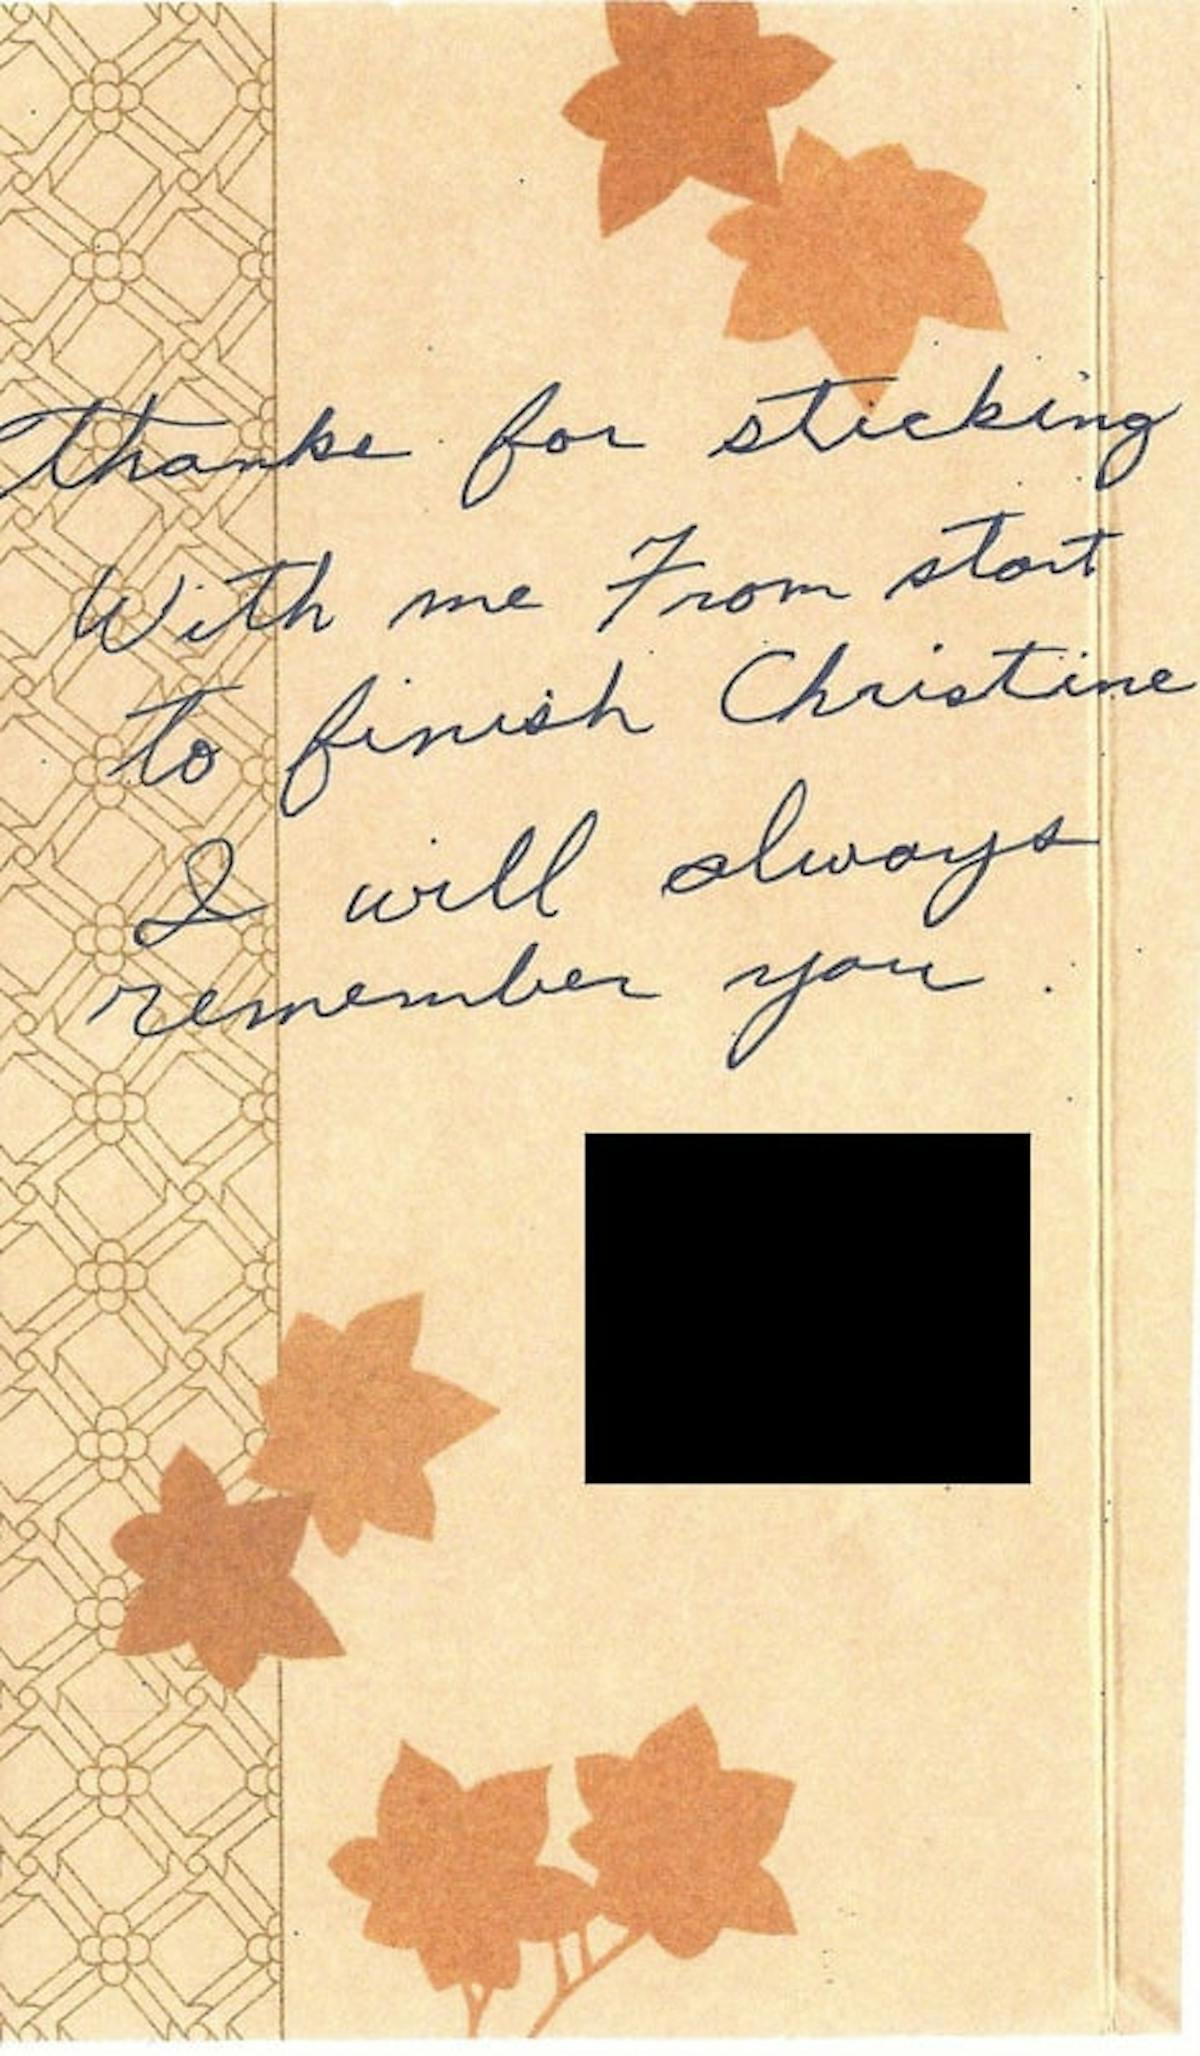 thanks for sticking
With me From start
to finish Christine
I will always
remember you.